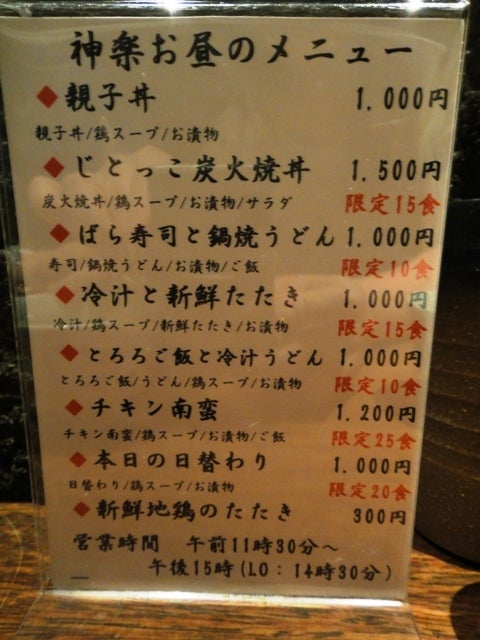 神楽お昼のメニュー
◆親子丼 1.000円
親子丼/鶏スープ/お漬物
◆じとっこ炭火焼丼 1.500円
炭火焼丼/鶏スープ/お漬物/サラダ 限定15食
◆ばら寿司と鍋焼うどん 1.000円
寿司/鍋焼うどん/お漬物/ご飯 限定10食
◆冷汁と新鮮たたき 1.000円
冷汁/鶏スープ/新鮮たたき/お漬物 限定15食
◆とろろご飯と冷汁うどん 1.000円
とろろご飯/うどん/鶏スープ/お漬物 限定10食
◆チキン南蛮 1.200円
チキン南蛮/鶏スープ/お漬物/ご飯 限定25食
◆本日の日替わり 1.000円
日替わり/鶏スープ/お漬物 限定20食
◆新鮮地鶏のたたき 300円
営業時間 午前11時30分～
午後15時(LO:14時30分)